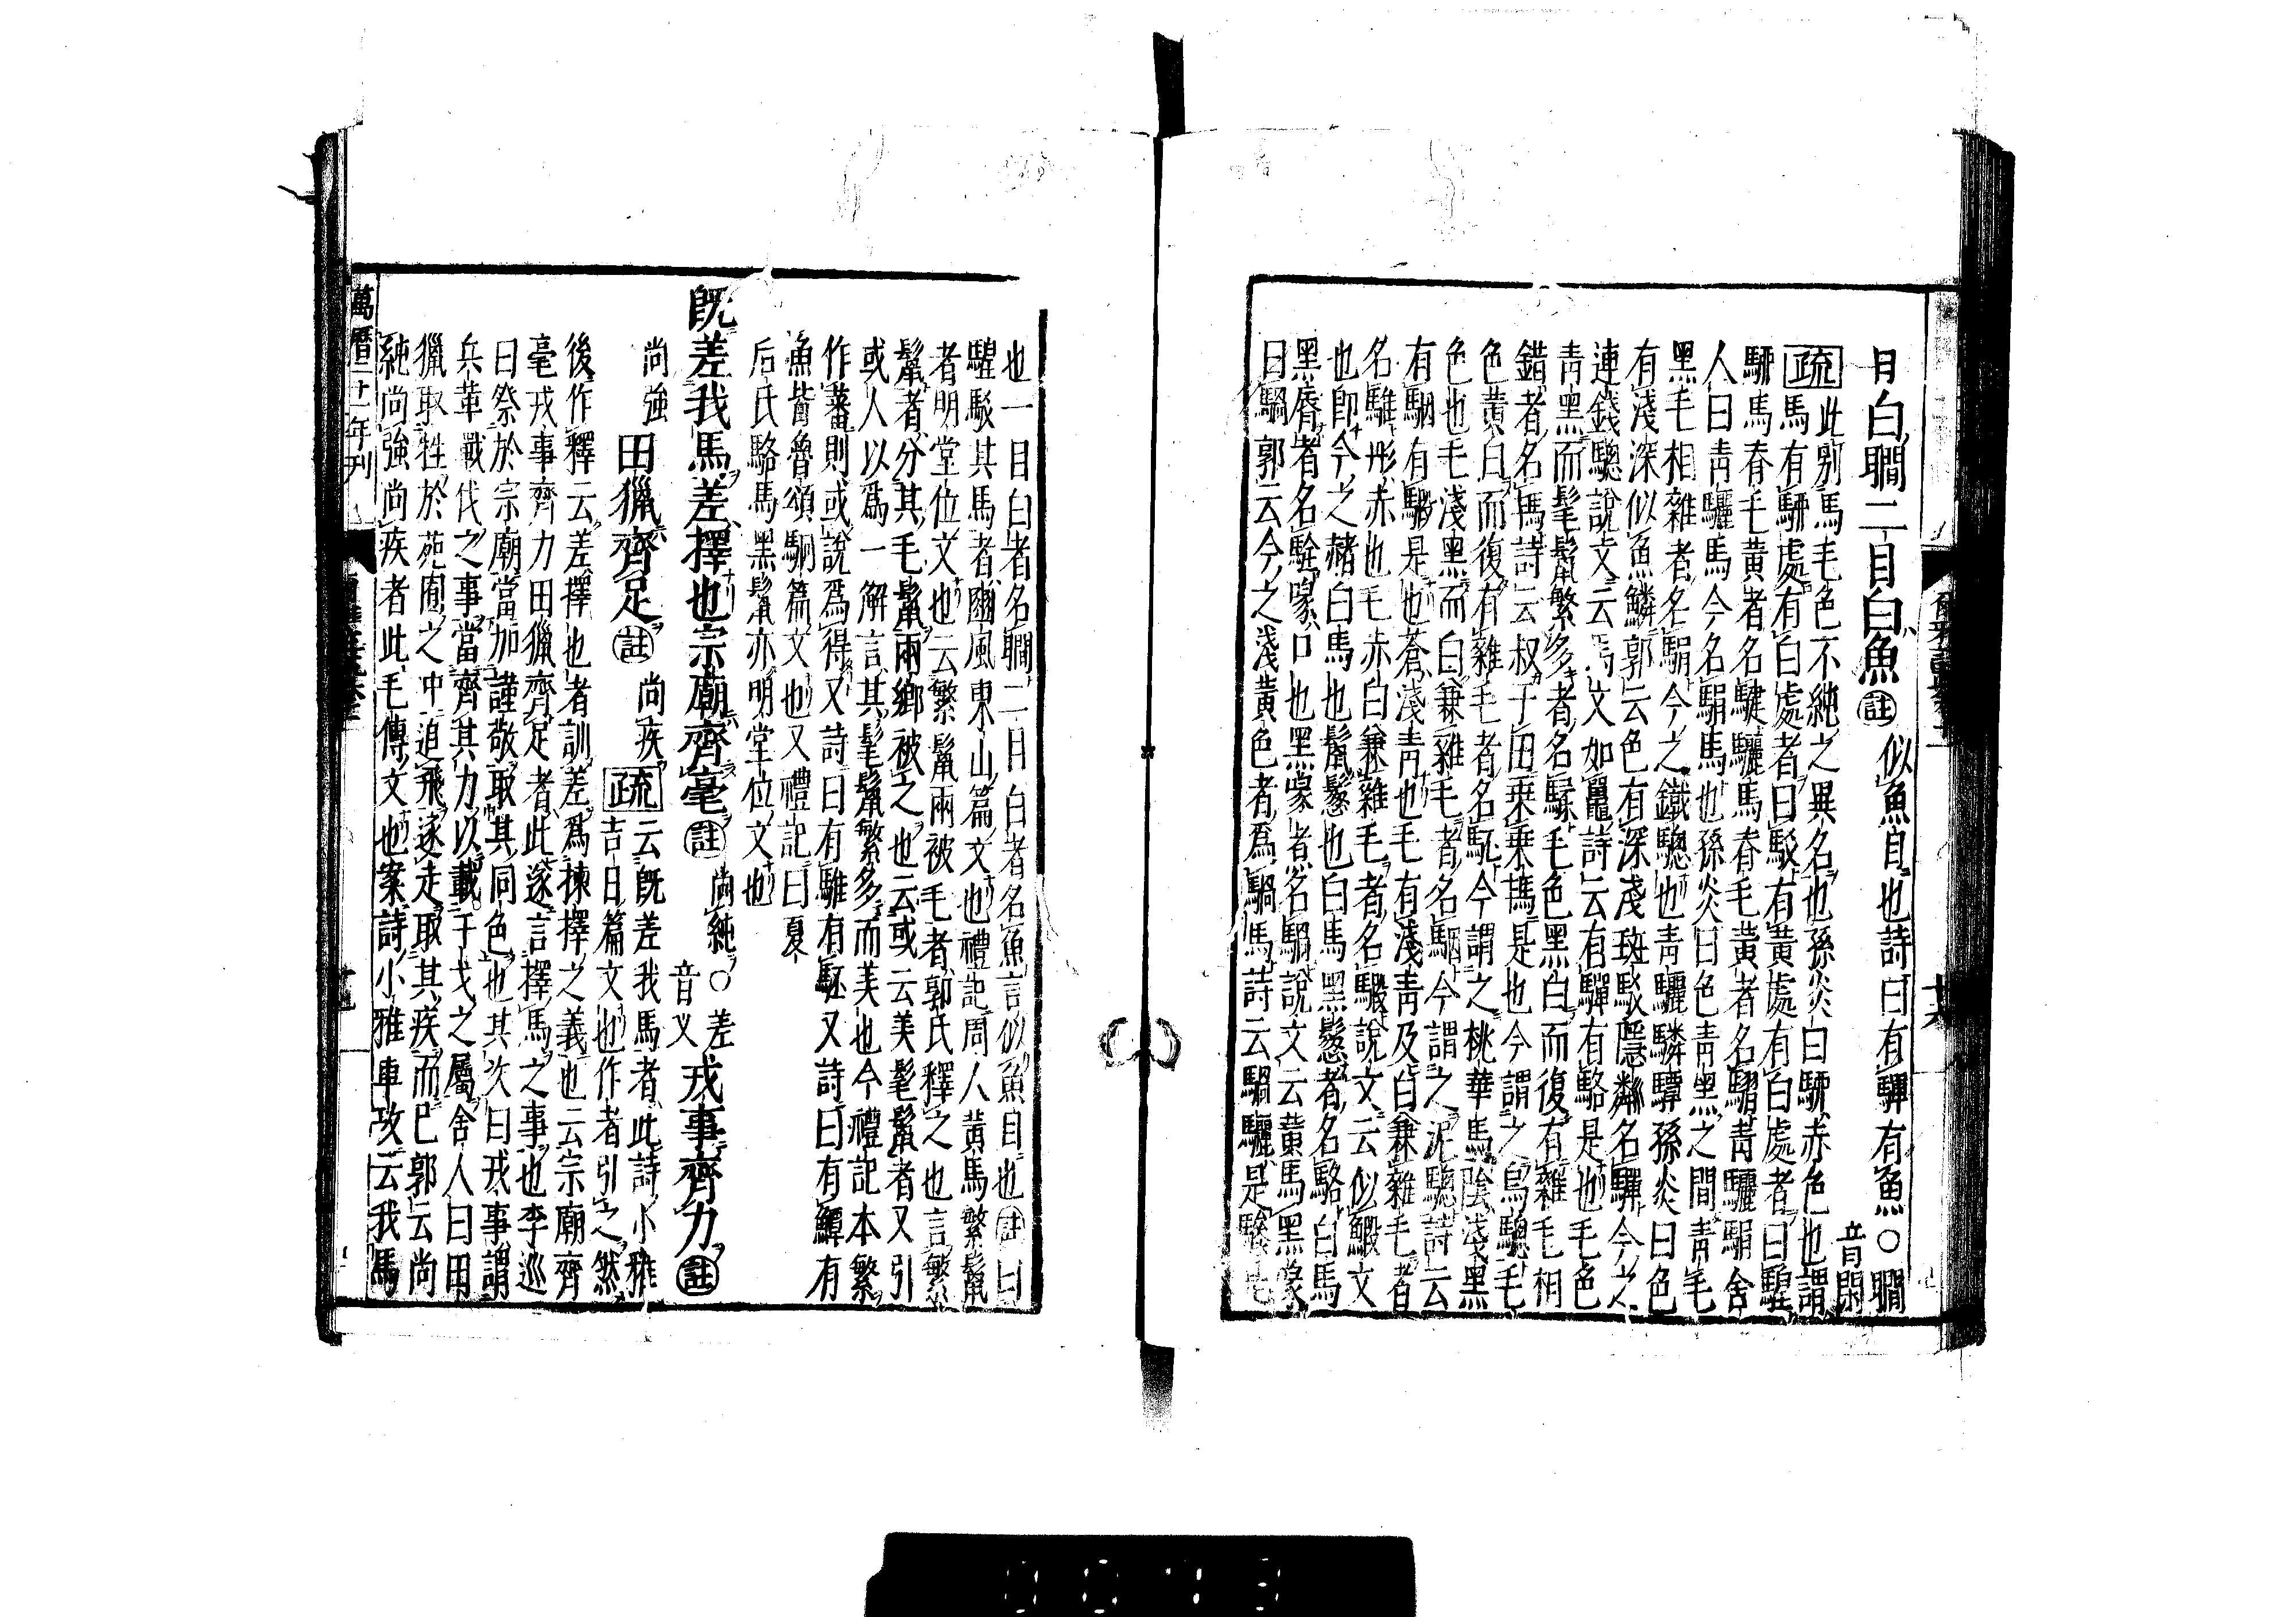 目白瞯二目白魚註似魚目也詩曰有驔有魚○瞯
音閑
疏此別馬毛色不純之異名也孫炎曰騂赤色也謂
馬有騂處有白處者曰駁有黃處有白處者曰騜
騂馬脊毛黃者名騝驪馬脊毛黃者名騽青驪駽舍
人曰青驪馬今名駽馬也孫炎曰色青黑之間青毛
黑毛相雜者名駽今之鐵驄也青驪驎驒孫炎曰色
有淺深似魚鱗郭云色有深淺斑駁隱粼名驒今之
連錢驄說文云馬文如鼉詩云有驒有駱是也毛色
青黑而髦鬣繁多者名騥毛色黑白而復有雜毛相
錯者名馬詩云叔于田乗乗鴇是也今謂之烏驄毛
色黃白而復有雜毛者名駓今謂之桃華馬陰淺黑
色也毛淺黑而白兼雜毛者名駰今謂之泥驄詩云
有駰有騢是也蒼淺青也毛有淺青及白兼雜毛者
名騅彤赤也毛赤白兼雜毛者名騢說文云似鰕文
也卽今之赭白馬也鬣鬉也白馬黑鬉者名駱白馬
黑脣者名駩喙口也黑喙者名騧說文云黃馬黑喙
曰騧郭云今之淺黃色者爲騧馬詩云騧驪是驂毛
也一目白者名瞯二目白者名魚言似魚目也註曰
騜駁其馬者豳風東山篇文也禮記周人黃馬繁鬣
者明堂位文也云繁鬣兩被毛者郭氏釋之也言繁
鬣者分其毛鬣兩鄉被之也云或云美髦鬣者又引
或人以爲一解言其髦鬣繁多而美也今禮記本繁
作蕃則或說爲得又詩曰有騅有駓又詩曰有驔有
魚皆魯頌駉篇文也又禮記曰夏
后氏駱馬黑鬣亦明堂位文也
旣差我馬差擇也宗廟齊毫註尚純○差
音乂戎事齊力註
尚強田獵齊足註尚疾疏云旣差我馬者此詩小雅
吉日篇文也作者引之然
後作釋云差擇也者訓差爲揀擇之義也云宗廟齊
毫戎事齊力田獵齊足者此遂言擇馬之事也李巡
曰祭於宗廟當加謹敬取其同色也其次曰戎事謂
兵革戰伐之事當齊其力以載干戈之屬舍人曰田
獵取牲於苑囿之中追飛逐走取其疾而已郭云尚
純尚強尚疾者此毛傳文也案詩小雅車攻云我馬
萬曆二十一年刊